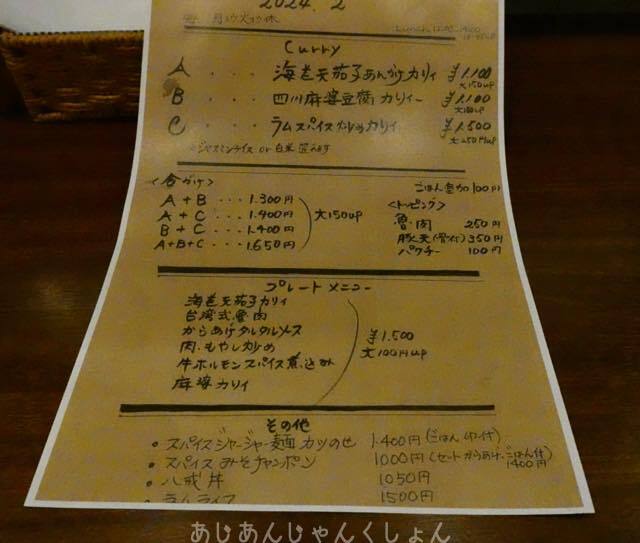 2024. 2
Curry
A ・・・ 海老天茄子あんかけカリィ ¥1.100
大150up
B ・・・ 四川麻婆豆腐カリィー ¥1.100
大150up
C ・・・ ラムスパイス炒めカリィ ¥1.500
大250円up
ジャスミンライス or 白米 選べます
<合がけ>
A + B ・・・ 1.300円
A + C ・・・ 1.400円
B + C ・・・ 1.400円
A+B+C ・・・ 1.650円
大150up
ごはん追加100円
<トッピング>
魯肉 250円
豚天(骨付) 350円
パクチー 100円
プレートメニュー
海老天茄子カリィ
台湾式魯肉
からあげタルタルソース
肉もやし炒め
牛ホルモンスパイス煮込み
麻婆カリィ
¥1.500
大100円up
その他
• スパイスジャージャー麺カツのせ 1.400円(ごはん付)
• スパイスみそチャンポン 1000円(セットからあげ、ごはん付)
1400円
• 八戒丼 1050円
• ラムライス 1500円
あじあんじゃんくしょん